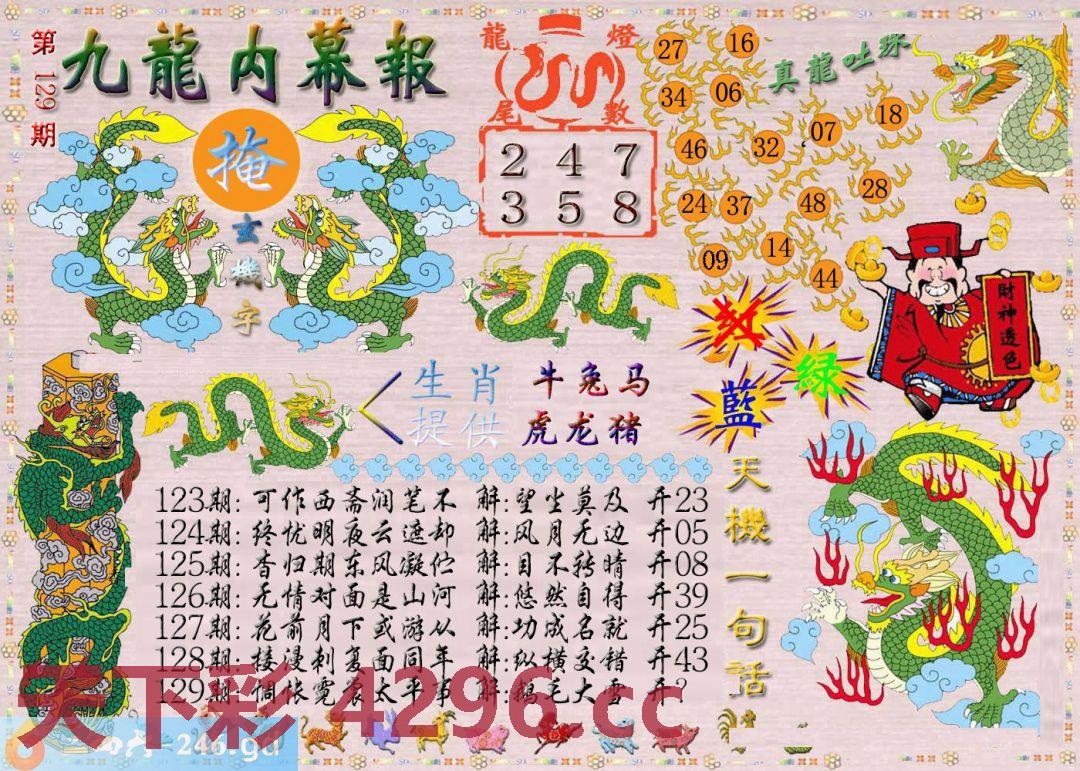 第129期
九龍内幕報
掩
玄機字
龍燈
尾數
2 4 7
3 5 8
真龍吐珠
27 16
34 06
46 32 07 18
24 37 48 28
09 14 44
財神透色
红
綠
藍
生肖 牛兔马
提供 虎龙猪
天機一句話
123期: 可作西斋润笔不 解:望尘莫及 开23
124期: 终忧明夜云遮却 解:风月无边 开05
125期: 香归期东风凝伫 解:目不转睛 开08
126期: 无情对面是山河 解:悠然自得 开39
127期: 花前月下或游从 解:功成名就 开25
128期: 接浸刺复面同年 解:纵横交错 开43
129期: 惆怅霓裳太平事 解:鹅毛大雪 开?
天下彩 4296.cc
=246.gd